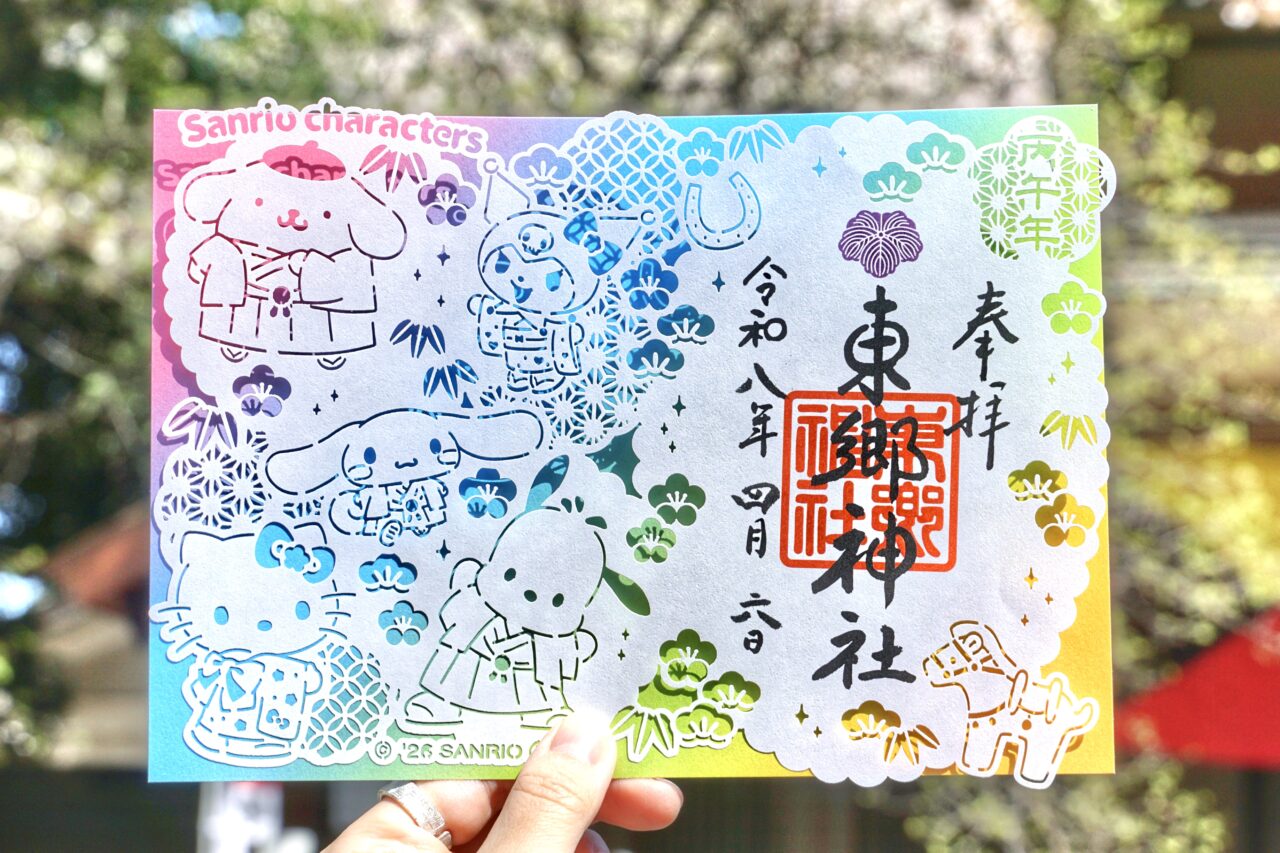 Sanrio characters
丙午年
奉拝
東郷神社
東郷神社
令和八年 四月 六日
© '26 SANRIO